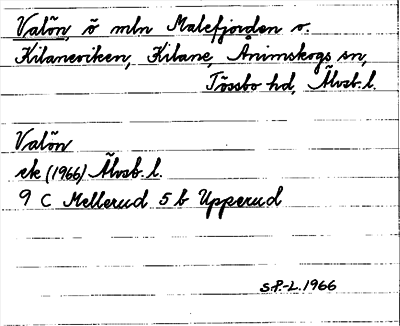 Valön, ö mln Malefjorden o.
Kilaneviken, Kilane, Animskogs sn,
Tössbo hd, Älvsb. l.
Valön
ek (1966) Älvsb. l.
9 C Mellerud 5 b Upperud
S.P.-L. 1966